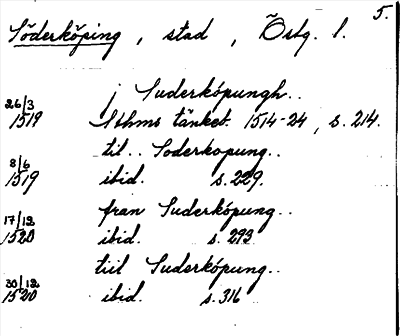 5.
Söderköping, stad, Östg. l.
j Suderköpungh..
26/3 1519 Sthms tänkeb. 1514-24, s. 214.
til.. Soderkopung..
8/6 1519 ibid. s. 229.
fran Suderköpung..
17/12 1520 ibid. s. 293
tiil Suderköpung..
30/12 1520 ibid. s. 316